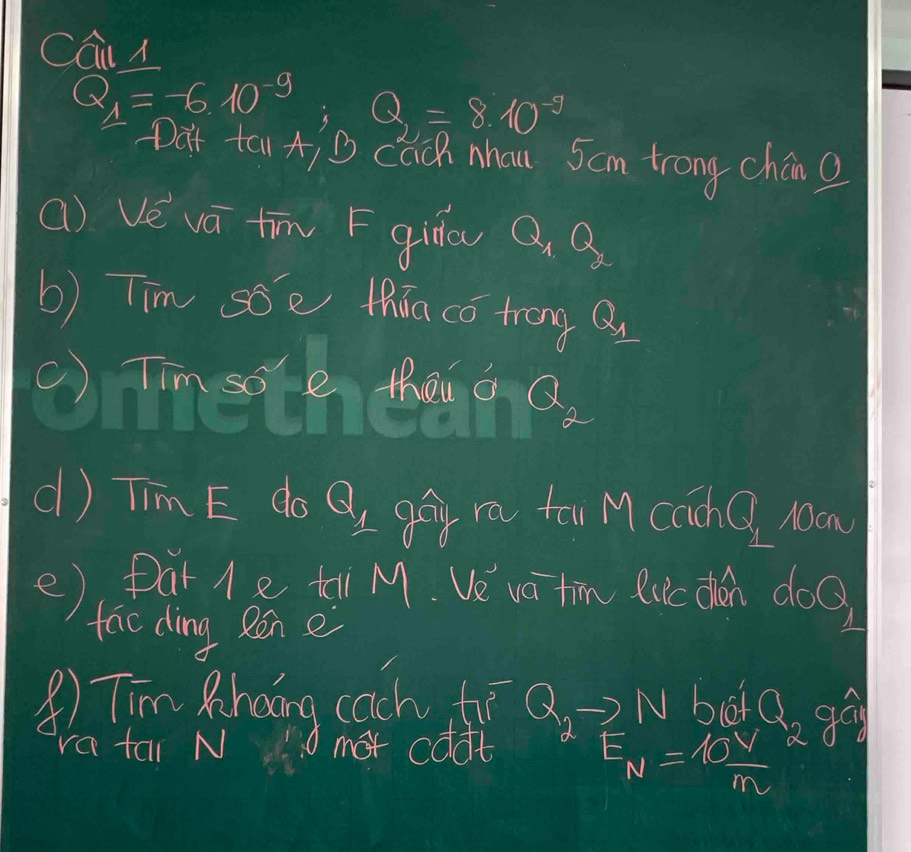 Câu 1
Q₁ = -6.10⁻⁹ ; Q₂ = 8.10⁻⁹
Đặt tại A, B cách nhau 5cm trong chân O
a) Vẽ và tìm F giữa Q₁, Q₂
b) Tìm số e thừa có trong Q₁
c) Tìm số e thiếu ở Q₂
omethean
d) Tìm E do Q₁ gây ra tại M cách Q₁ 10cm
e) Đặt 1 e tại M. Vẽ và tìm lực điện do Q₁
tác dụng lên e
f) Tìm khoảng cách từ Q₂ → N biết Q₂ gây
ra tại N một cđđt E_N = 10 V/m